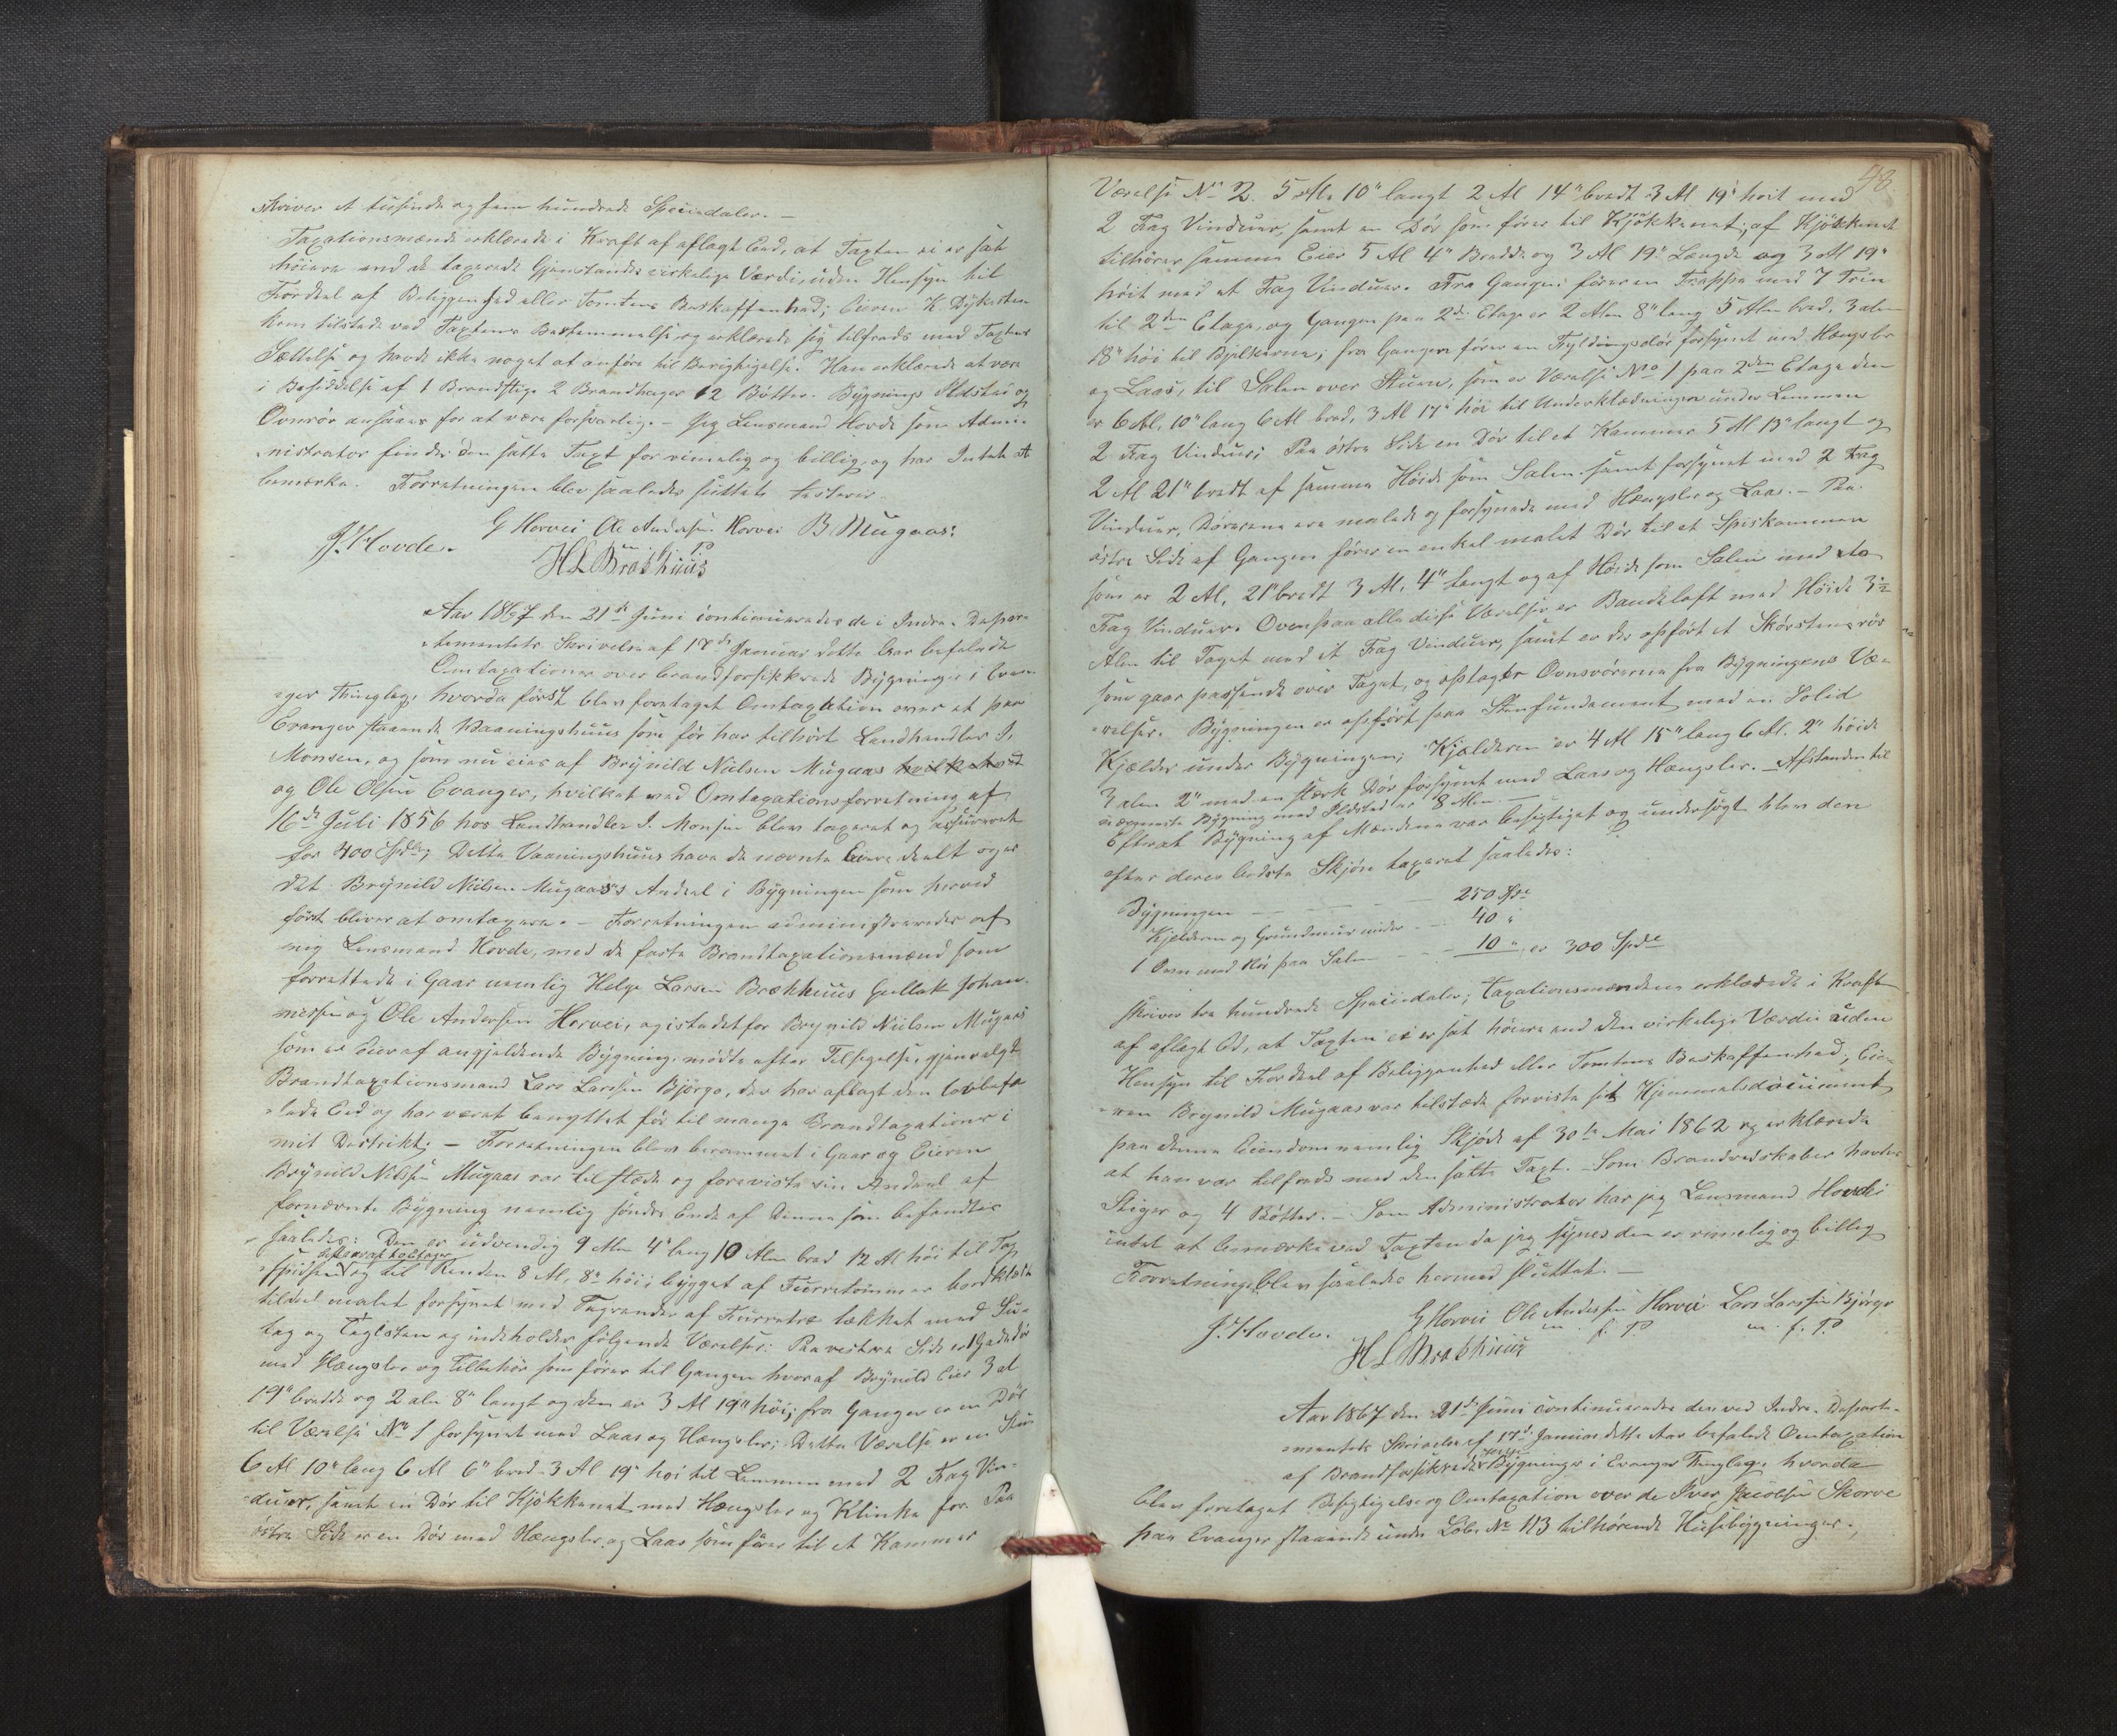 skriver et tusinde og fem hundrede Speciedaler. —
Taxationsmænd erklærede i Kraft af aflagt Eed, at Taxten ei er sat
høiere end de taxerede Gjenstandes virkelige Værdi, uden Hensyn til
Fordeel af Beliggenhed eller Tomtens Beskaffenhed; Eieren K. Dykesten
kom tilstede ved Taxtens Bestemmelse og erklærede sig tilfreds med Taxtens
Sættelse og havde ikke noget at anføre til Berigtigelse. Han erklærede at være
i Besiddelse af 1 Brandstige 2 Brandhager 12 Bøtter. Bygnings Ildsted og
Ovnsrør ansaaes for at være forsvarlig. — Jeg Lensmand Hovde som Admi-
nistrator finder den satte Taxt for rimelig og billig, og har Intet at
bemærke. Forretningen blev saaledes sluttet testerer
G Horvei Ole Andersen Horvei B. Mugaas:
J. Hovde.
H L Brækhuus
Aar 1867 den 21de Juni continueredes de i Indre-Depar-
tementets Skrivelse af 17de Januar dette Aar befalede
Omtaxationer over brandforsikkrede Bygninger i Evan-
ger Thinglag, hvorda først blev foretaget Omtaxation over et paa
Evanger staaende Vaaningshuus som før har tilhørt Landhandler I.
Monsen, og som nu eies af Brynild Nielsen Mugaas
og Ole Olsen Evanger, hvilket ved Omtaxationsforretning af
16de Juli 1856 hos Landhandler I. Monsen blev taxeret og assureret
for 400 Spdlr; Dette Vaaningshuus have de nævnte Eiere deelt og er
det Brynild Nielsen Mugaas's Andeel i Bygningen som herved
først bliver at omtaxere. — Forretningen administreredes af
mig Lensmand Hovde, med de faste Brandtaxationsmænd som
forrettede i Gaar nemlig Helge Larsen Brækhuus Gullak Johan-
nessen og Ole Andersen Horvei, og istedetfor Brynild Nielsen Mugaas
som er Eier af angjeldende Bygning, mødte efter Tilsigelse, gjenvalgt
Brandtaxationsmand Lars Larsen Bjørgo, der har aflagt den lovbefa-
lede Eed og har været benyttet før til mange Brandtaxationer i
mit Distrikt; — Forretningen blev berammet i Gaar og Eieren
Brynild Nielsen Mugaas var tilstæde og foreviste sin Andeel af
fornævnte Bygning nemlig søndre Ende af denne som befandtes
saaledes: Den er udvendig 9 Alen 4" lang 10 Alen bred 12 Al høi til Tag-
spidsen og til Renden 8 Al, 8" høi; bygget af Furretømmer bordklædt
tildeel malet forsynet med Tagrender af Furretræ tækket med Su-
tag og Taglsten og indeholder følgende Værelser: Paa vestre Side er 1 Gadedør
med Hængsler og Tilbehør som fører til Gangen hvoraf Brynild Eier 3 al
19" bredde og 2 alen 8" langt og den er 3 Al 19" høi; fra Gangen er en Dør
til Værelse No 1 forsynet med Laas og Hængsler; Dette Værelse er en Stue
6 Al 10" lang 6 Al 6" bred 3 Al 19" høi til Lemmen med 2 Fag Vin-
duer, samt en Dør til Kjøkkenet med Hængsler og Klinke for. Paa
østre Side er en Dør med Hængsler og Laas som fører til et Kammer
48.
Værelse No 2. 5 Al 10" langt 2 Al 14" bredt 3 Al 19" høit med
2 Fag Vinduer, samt en Dør som fører til Kjøkkenet; af Kjøkkenet
tilhører samme Eier 5 Al 4" Bredde og 3 Al 19" Længde og 3 Al 19"
høit med et Fag Vinduer. Fra Gangen fører en Trappe med 7 Trin
til 2den Etage, og Gangen paa 2de Etage er 2 Alen 8" lang 5 Alen bred, 3 alen
18" høi til Bjelkerne; fra Gangen fører en Fyldingsdør forsynet med Hængsler
og Laas, til Salen over Stuen, som er Værelse No 1 paa 2den Etage den
er 6 Al, 10" lang 6 Al bred, 3 Al 17" høi til Underklædningen under Lemmen
2 Fag Vinduer; Paa østre Side en Dør til et Kammer 5 Al 13" langt og
2 Al 21" bredt af samme Høide som Salen samt forsynet med 2 Fag
Vinduer, Dørerne ere malede og forsynede med Hængsler og Laas. — Paa
østre Side af Gangen fører en enkel malet Dør til et Spiskammer
som er 2 Al, 21" bredt 3 Al, 4" langt og af Høide som Salen med eto
Fag Vinduer. Ovenpaa alle disse Værelser er Bandeloft med Høide 3½
Alen til Taget med et Fag Vinduer, samt er der opført et Skorstensrør
som gaar passende over Taget, og optager Ovnsrørerne fra Bygningens Væ-
relser. Bygningen er opført paa Stenfundament med en Solid
Kjælder under Bygningen; Kjælderen er 4 Al 15" lang 6 Al. 2" høide
3 alen 2" med en stærk Dør forsynet med Laas og Hængsler. — Afstanden til
nærmeste Bygning med Ildsted er 8 Alen. —
Efterat Bygning af Mændene var besigtiget og undersøgt blev den
efter deres bedste Skjøn taxeret saaledes:
Bygningen — — — — 250 Spd
Kjelderen og Grundmur under — — 40 "
1 Ovn med Rør paa Salen — — 10 " er 300 Spdlr
skriver tre hundrede Speciedaler; Taxationsmændene erklærede i Kraft
af aflagt Ed, at Taxten ei er sat høiere end den virkelige Værdie uden
Hensyn til Fordeel af Beliggenhed eller Tomtens Beskaffenhed; Eie-
ren Brynild Mugaas var tilstæde foreviste sit Hjemmelsdocument
paa denne Eiendom nemlig Skjøde af 30te Mai 1862 og erklærede
at han var tilfreds med den satte Taxt. — Som Brandredskaber havdes
Stiger og 4 Bøtter. — Som Administrator har jeg Lensmand Hovde
intet at bemærke ved Taxten da jeg synes den er rimelig og billig
Forretningen blev saaledes hermed sluttet. —
G Horvei Ole Andersen Horvei Lars Larssen Bjørgo
J. Hovde. m. f. P. m. f. P.
H L Brækhuus
Aar 1867 den 21de Juni continueredes den ved Indre-Departe-
mentets Skrivelse af 17de Januar dette Aar befalede Omtaxation
af Brandforsikrede Bygninger i Evanger Thinglag, hvorda
blev foretaget Besigtigelse og Omtaxation over de Iver Jacobsen Skorve
paa Evanger staaende under Løbe No 113 tilhørende Husebygninger.,